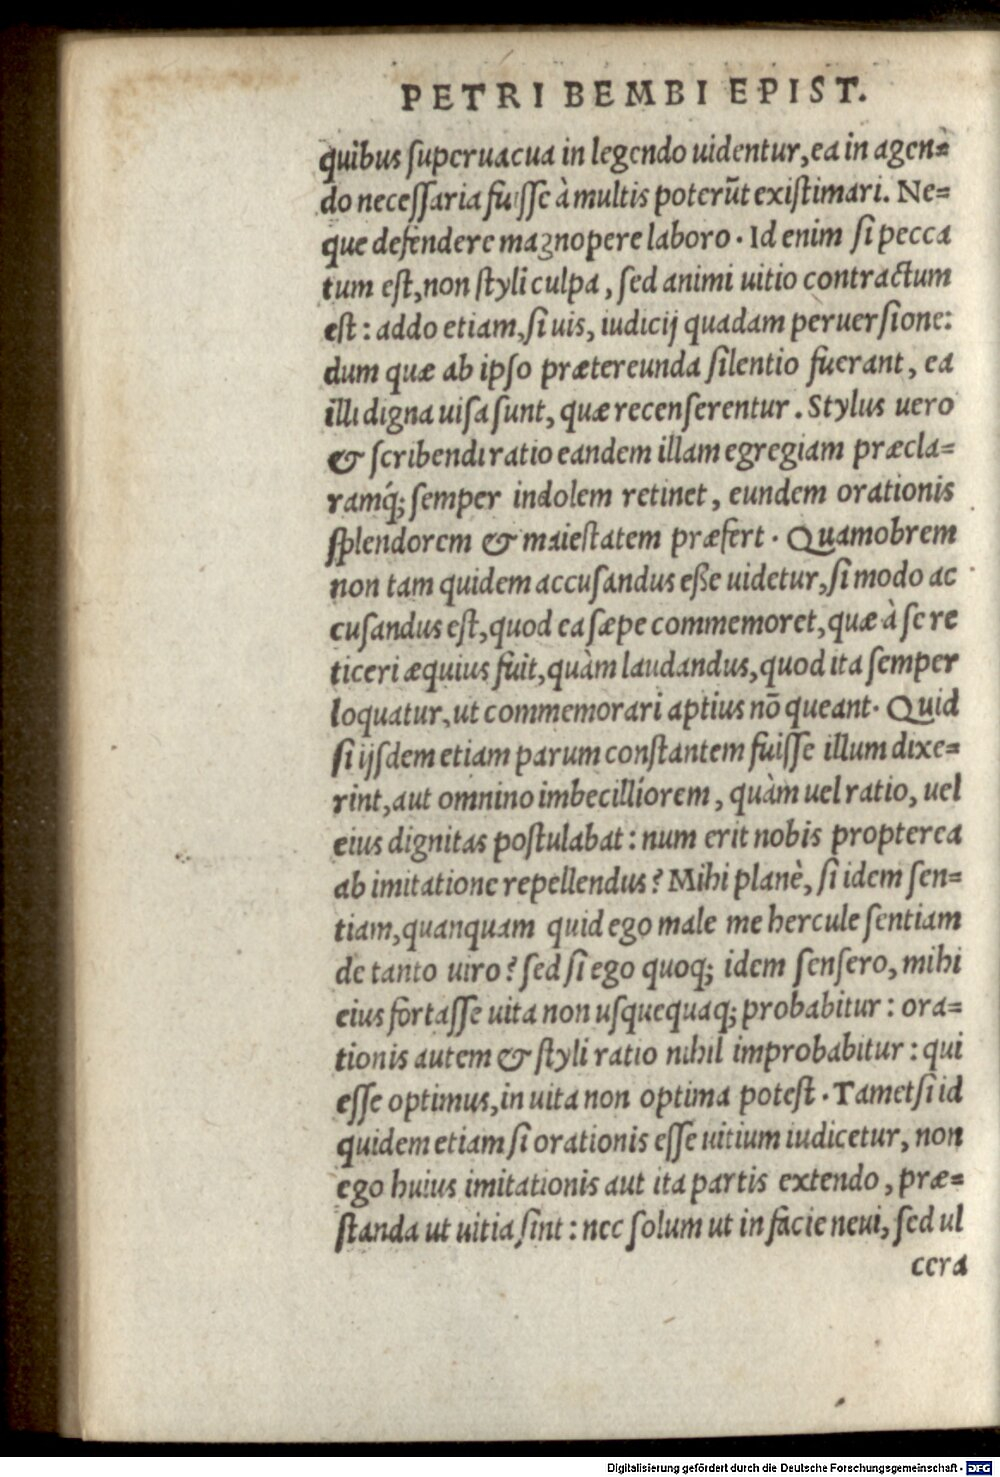 PETRI BEMBI EPIST.
quibus ſuperuacua in legendo uidentur, ea in agen=
do neceſſaria fuiſſe à multis poterũt exiſtimari. Ne=
que defendere magnopere laboro. Id enim ſi pecca
tum eſt, non ſtyli culpa, ſed animi uitio contractum
eſt: addo etiam, ſi uis, iudicij quadam peruerſione:
dum quæ ab ipſo prætereunda ſilentio fuerant, ea
illi digna uiſa ſunt, quæ recenſerentur. Stylus uero
& ſcribendi ratio eandem illam egregiam præcla=
ramq́; ſemper indolem retinet, eundem orationis
ſplendorem & maieſtatem præfert. Quamobrem
non tam quidem accuſandus eße uidetur, ſi modo ac
cuſandus eſt, quod ea ſæpe commemoret, quæ à ſe re
ticeri æquius fuit, quàm laudandus, quod ita ſemper
loquatur, ut commemorari aptius nõ queant. Quid
ſi ijſdem etiam parum conſtantem fuiſſe illum dixe=
rint, aut omnino imbecilliorem, quàm uel ratio, uel
eius dignitas poſtulabat: num erit nobis propterea
ab imitatione repellendus? Mihi planè, ſi idem ſen=
tiam, quanquam quid ego male me hercule ſentiam
de tanto uiro? ſed ſi ego quoq; idem ſenſero, mihi
eius fortaſſe uita non uſquequaq; probabitur: ora=
tionis autem & ſtyli ratio nihil improbabitur: qui
eſſe optimus, in uita non optima poteſt. Tametſi id
quidem etiam ſi orationis eſſe uitium iudicetur, non
ego huius imitationis aut ita partis extendo, præ=
ſtanda ut uitia ſint: nec ſolum ut in facie neui, ſed ul
cera
Digitalisierung gefördert durch die Deutsche Forschungsgemeinschaft - DFG